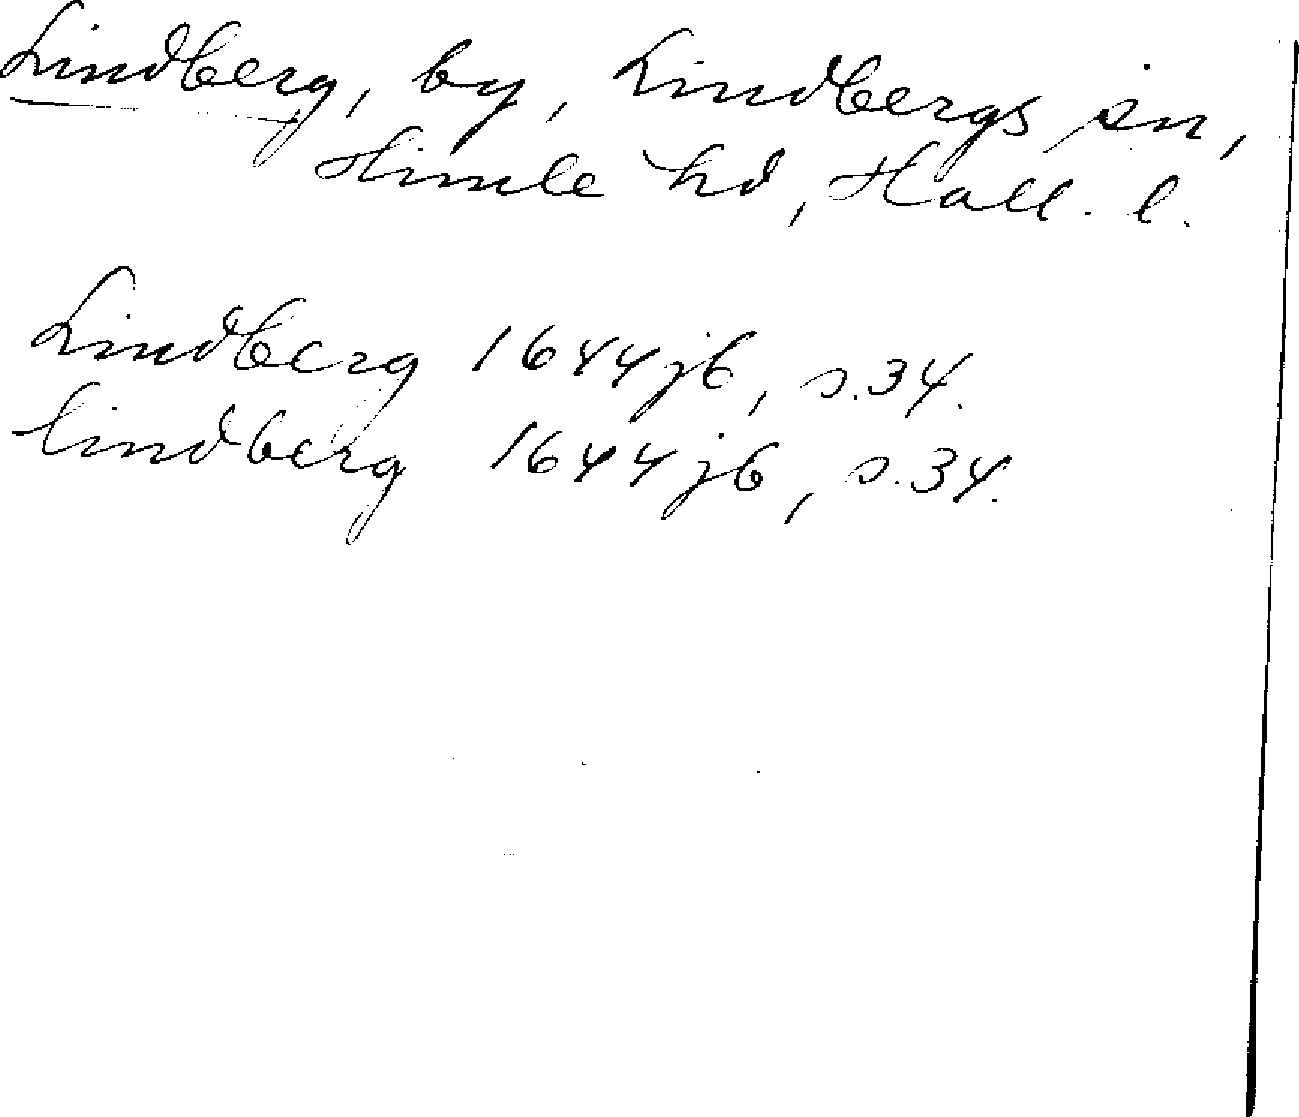 Lindberg, by, Lindbergs sn,
Himle hd, Hall. l.
Lindberg 1644 jb, s. 34.
lindberg 1644 jb, s. 34.